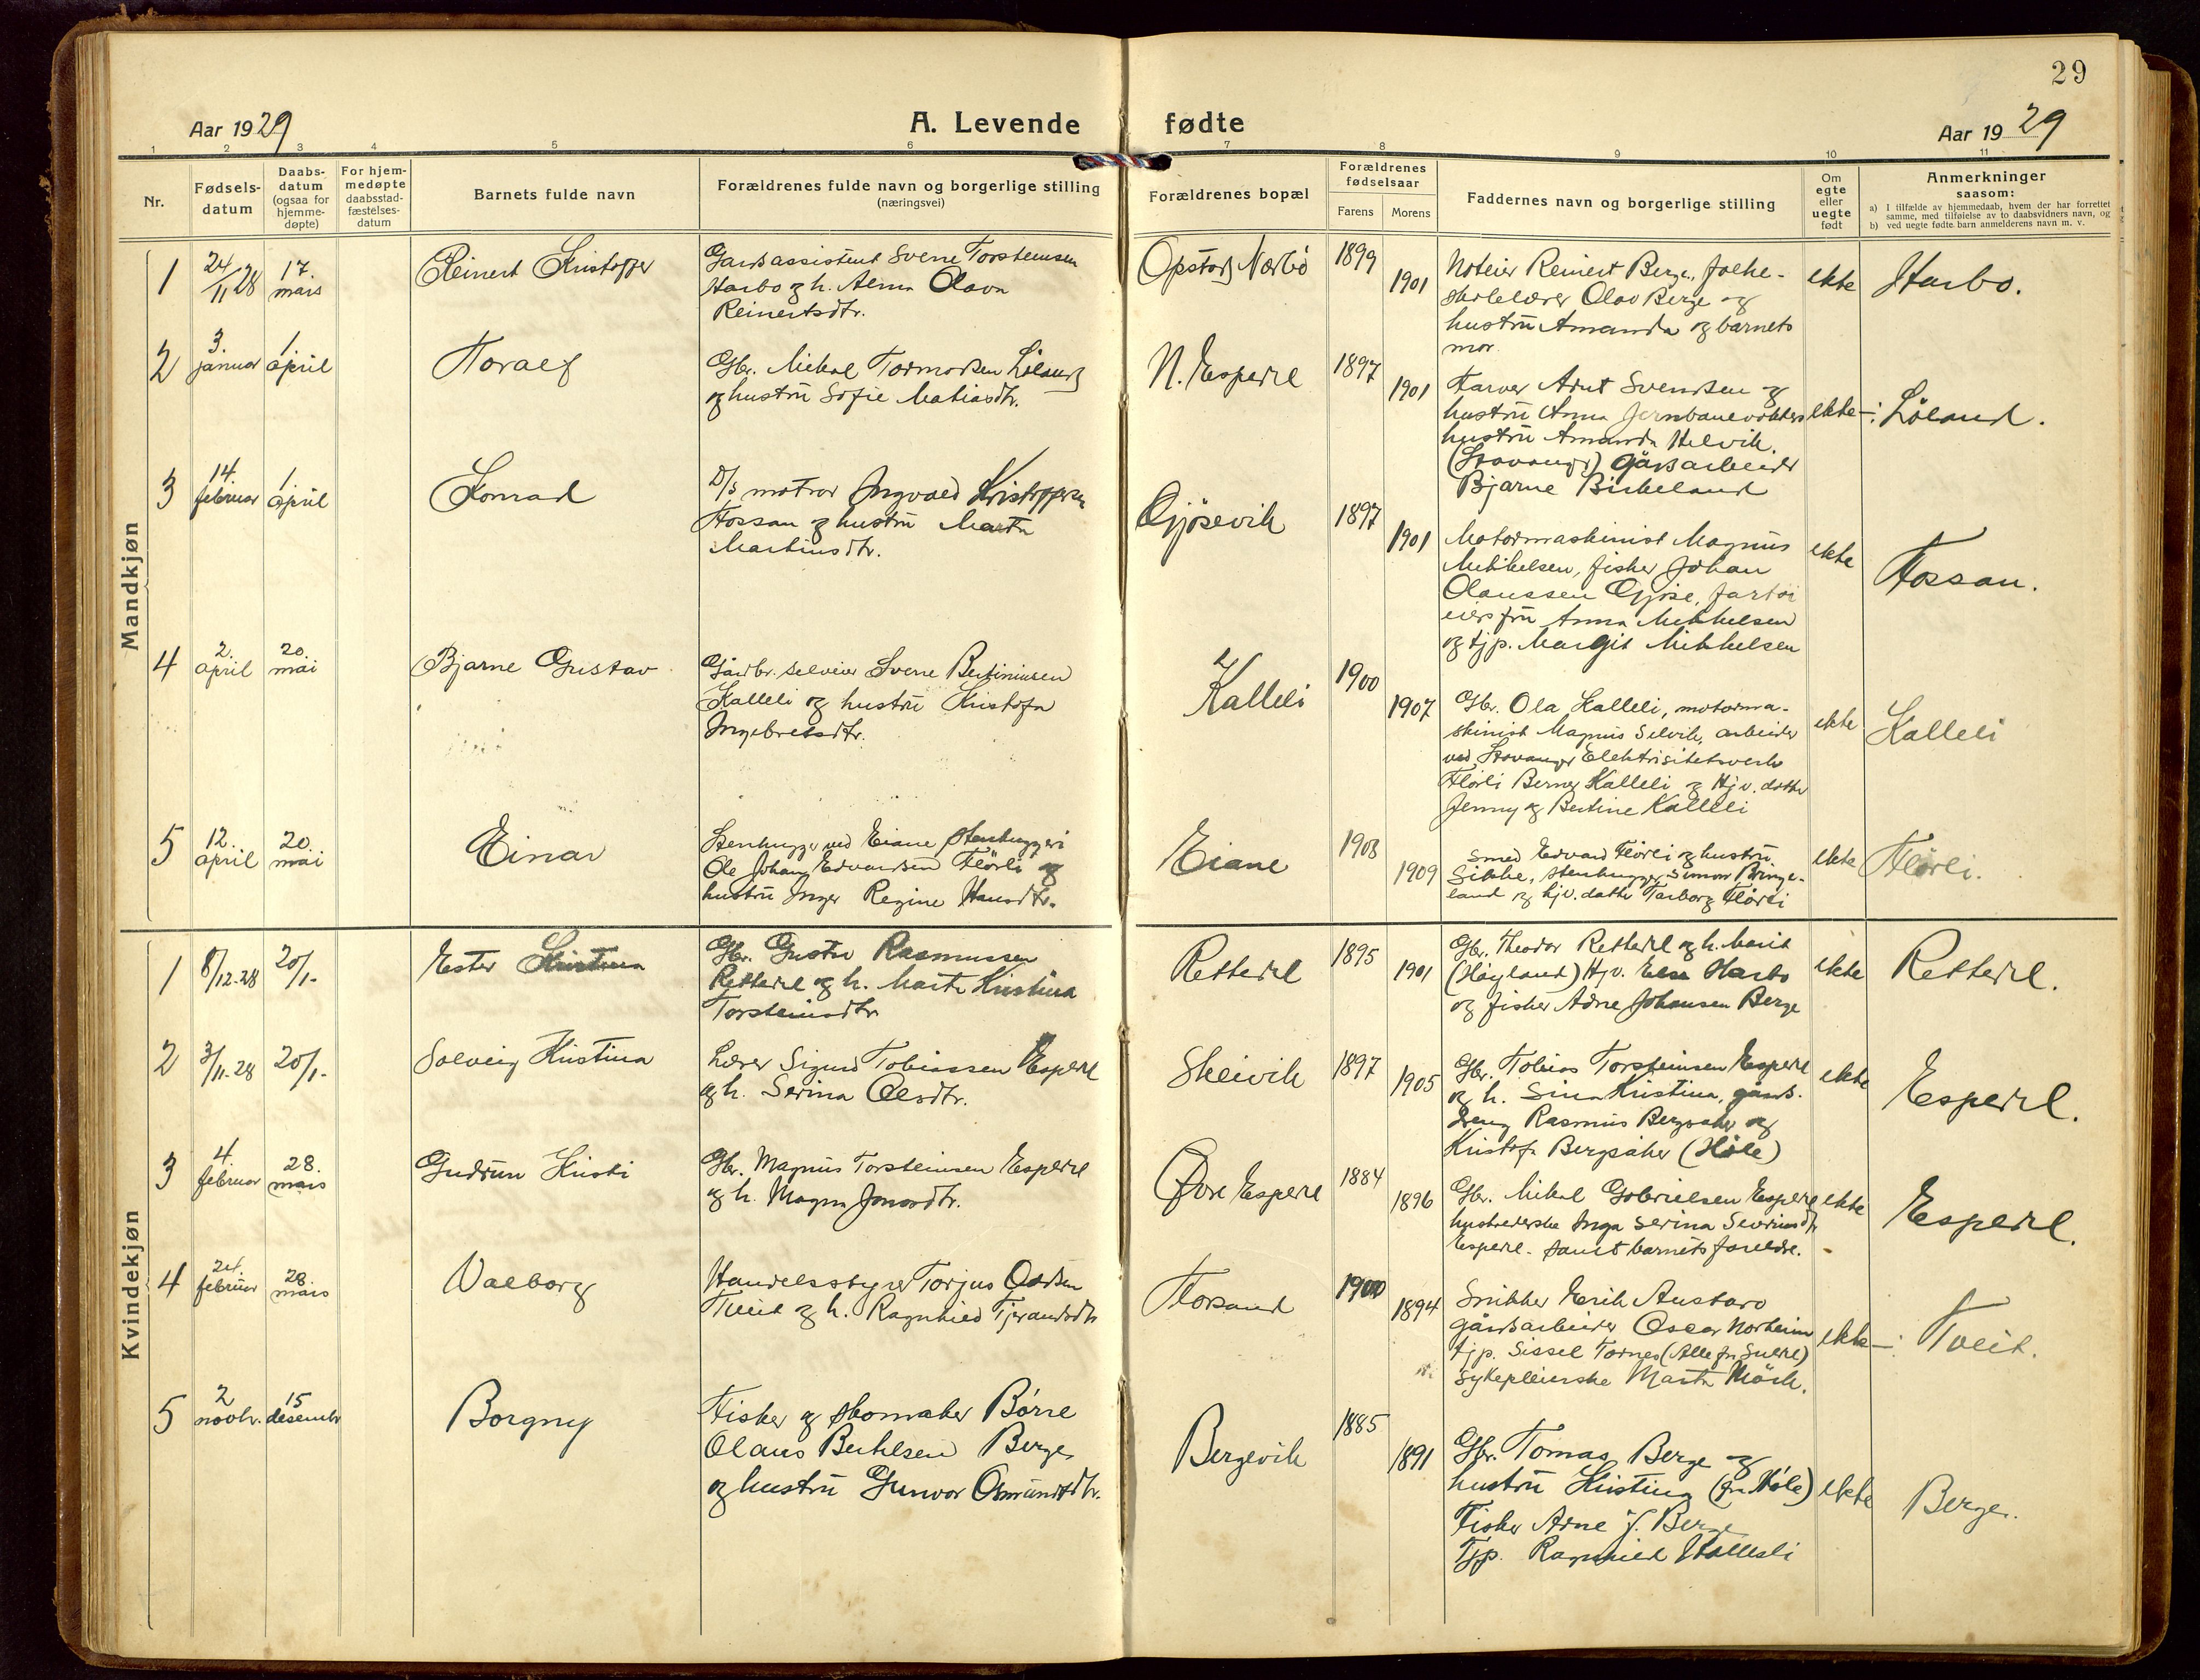 29
Aar 1929
A. Levende
fødte
Aar 1929
1 2 3 4 5 6 7 8 9 10 11
Nr.
Fødsels-
datum
Daabs-
datum
(ogsaa for
hjemme-
døpte)
For hjem-
medøpte
daabsstad-
fæstelses-
datum
Barnets fulde navn
Forældrenes fulde navn og borgerlige stilling
(næringsvei)
Forældrenes bopæl
Forældrenes
fødselsaar
Farens
Morens
Faddernes navn og borgerlige stilling
Om
egte
eller
uegte
født
Anmerkninger
saasom:
a) I tilfælde av hjemmedaab, hvem der har forrettet
samme, med tilføielse av to daabsvidners navn, og
b) ved uegte fødte barn anmelderens navn m. v.
Mandkjøn
1
24/11 28
17. mars
Reinert Kristoffer
Gardsassistent Sverre Torsteinsen
Harbo og h. Alma Olava
Reinertsdtr.
Opstad, Nærbø
1899
1901
Noteier Reinert Berge, folke-
skolelærer Olav Berge og
hustru Amanda og barnets
mor.
ekte
Harbo.
2
3. januar
1. april
Toralf
Gbr. Mikal Tormodsen Løland
og hustru Sofie Matiasdtr.
N. Espedal
1897
1901
Farver Arnt Svendsen og
hustru Anna Jernbanevokters
hustru Amanda Helvik.
(Stavanger) Gårdsarbeider
Bjarne Birkeland
ekte
Løland.
3
14. februar
1. april
Konrad
D/s matros Ingvald Kristoffersen
Fossan og hustru Marta
Martinsdtr.
Gjøsevik
1897
1901
Motormaskinist Magnus
Mikkelsen, fisker Johan
Olaussen Gjøse, fartøi
eiers fru Anna Mikkelsen
og tjp. Margit Mikkelsen
ekte
Fossan.
4
2. april
20. mai
Bjarne Gustav
Gårdbr. selveier Sverre Bertiniusen
Kalleli og hustru Kristofa
Ingebretsdtr.
Kalleli
1900
1907
Gbr. Ola Kalleli, motorma-
skinist Magnus Selvik, arbeider
ved Stavanger Elektrisitetsverk
Flørli Berner Kalleli og Hjv. dotter
Jenny og Bertine Kalleli
ekte
Kalleli
5
12. april
20. mai
Einar
Stenhugger ved Eiane Stenhuggeri
Ole Johan Edvardsen Flörli og
hustru Inger Regine Hansdtr.
Eiane
1903
1909
Smed Edvard Flörli og hustru
Sikke, stenhugger Simon Bringe-
land og hjv. datter Torborg Flörli
ekte
Flörli.
Kvindekjøn
1
8/12-28
20/1-
Ester Kristina
Gbr. Gustav Rasmussen
Rettedal og h. Marta Kristina
Torsteinsdtr
Rettedal
1895
1901
Gbr. Theodor Rettedal og h. Marit
(Høyland) Hjv. Elsa Harbo
og fisker Adne Johansen Berge
ekte
Rettedal.
2
3/11-28
20/1-
Solveig Kristina
Lærer Sigurd Tobiassen Espedal
og h. Serina Olsdtr.
Skeivik
1897
1905
Gbr. Tobias Torsteinsen Espedal
og h. Sina Kristina, gårds.
dreng Rasmus Bergsaker og
Kristofa Bergsaker (Høle)
ekte
Espedal.
3
4. februar
28. mars
Gudrun Kristi
Gbr. Magnus Torsteinsen Espedal
og h. Magna Jonasdtr.
Øvre Espedal
1884
1896
Gbr. Mikal Gabrielsen Espedal
husholderske Inga Serina Severinsdtr
Espedal. samt barnets foreldre.
ekte
Espedal.
4
24. februar
28. mars
Valborg
Handelsstyrer Torjus Oddsen
Tveit og h. Ragnhild Tjerandsdtr
Forsand
1900
1894
Snikker Erik Austarå
gårdsarbeider Oscar Norheim
tjp. Sissel Tornes (Alle fra Suldal)
Sykepleierske Marta Mörk.
ekte
Tveit.
5
2 novbr.
15 desembr
Borgny
Fisker og skomaker Børre
Olaus Bertelsen Berge
og hustru Gunvor Osmundsdtr.
Bergevik
1885
1891
Gbr. Tomas Berge og
hustru Kristina (fra Høle)
Fisker Adne J. Berge
Tjp. Ragnhild
ekte
Berge.